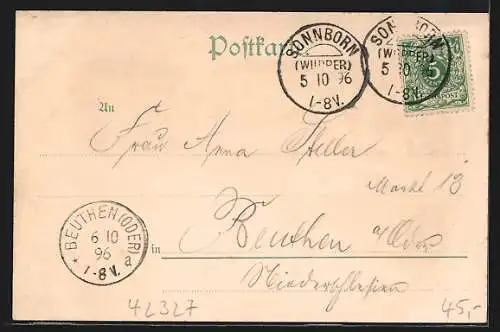 Postkarte
SONNBORN
(WUPPER)
5 10 96
1-8V.
SONNBORN
(WUPPER)
5 10 96
1-8V.
5
An
Frau Anna
Markt 13
BEUTHEN (ODER)
6 10
96
1-8V.
* a
in Beuthen a/Oder
Niederschlesien
42327
45,-